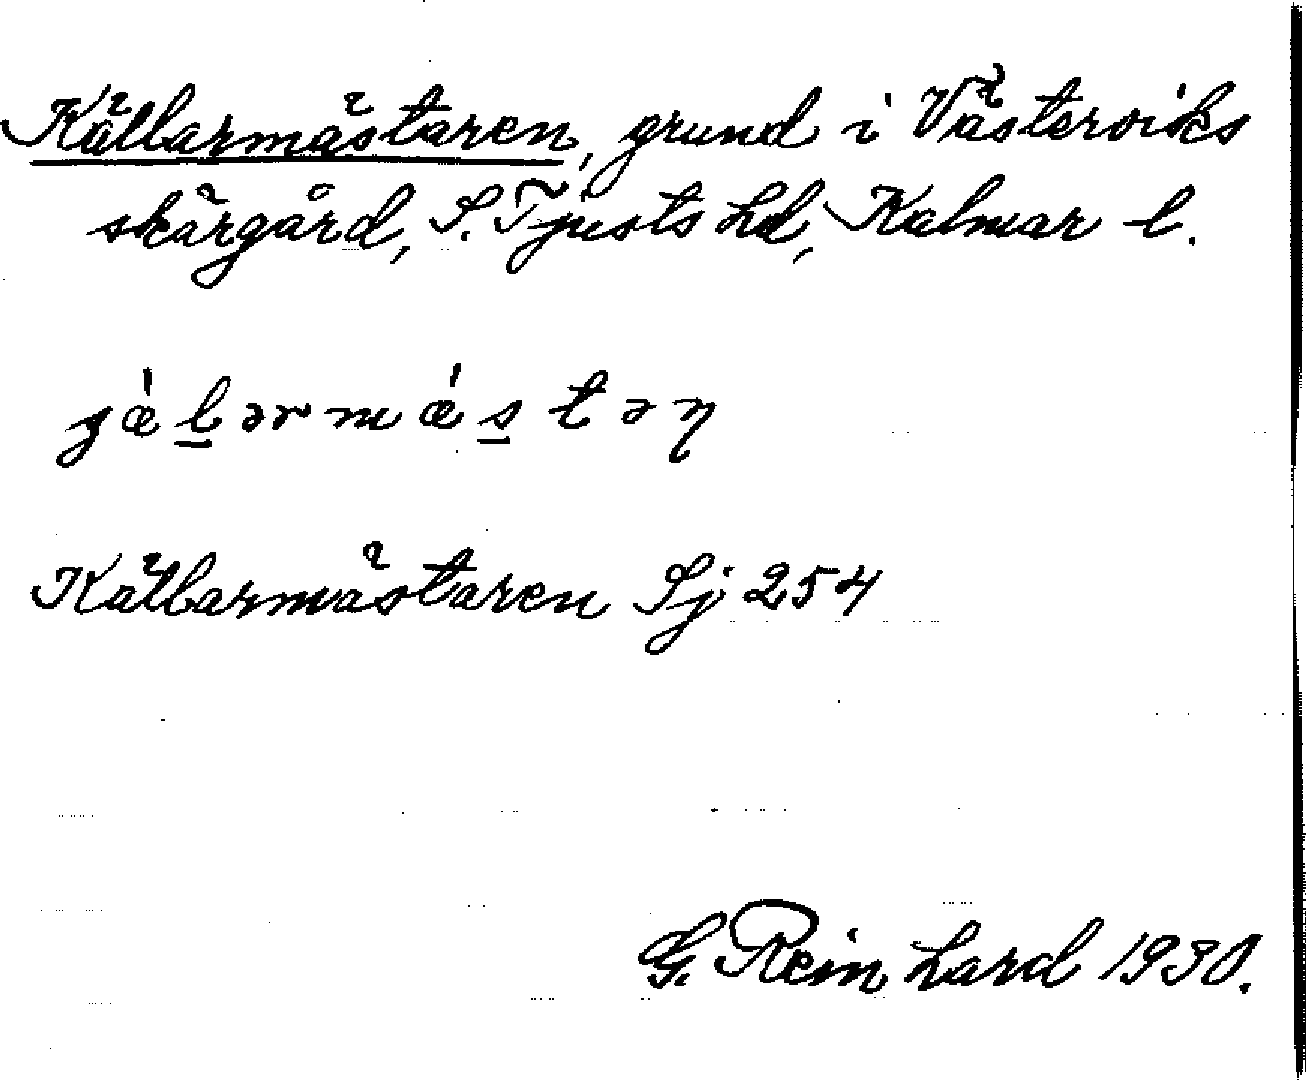 Källarmästaren, grund i Västerviks
skärgård, S. Tjusts hd, Kalmar l.
Källarmästaren Sj 254
G. Reinhard 1930.